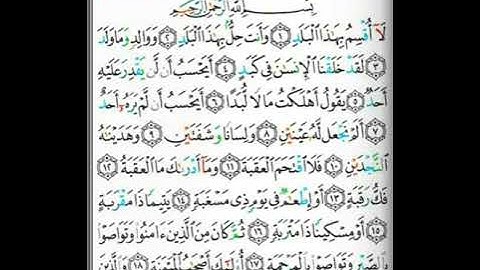 بِسْمِ اللَّهِ الرَّحْمَٰنِ الرَّحِيمِ
لَآ أُقْسِمُ بِهَٰذَا ٱلْبَلَدِ ١ وَأَنتَ حِلٌّۢ بِهَٰذَا ٱلْبَلَدِ ٢ وَوَالِدٍ وَمَا وَلَدَ
٣ لَقَدْ خَلَقْنَا ٱلْإِنسَٰنَ فِى كَبَدٍ ٤ أَيَحْسَبُ أَن لَّن يَقْدِرَ عَلَيْهِ
أَحَدٌ ٥ يَقُولُ أَهْلَكْتُ مَالًا لُّبَدًا ٦ أَيَحْسَبُ أَن لَّمْ يَرَهُۥٓ أَحَدٌ
٧ أَلَمْ نَجْعَل لَّهُۥ عَيْنَيْنِ ٨ وَلِسَانًا وَشَفَتَيْنِ ٩ وَهَدَيْنَٰهُ
ٱلنَّجْدَيْنِ ١٠ فَلَا ٱقْتَحَمَ ٱلْعَقَبَةَ ١١ وَمَآ أَدْرَىٰكَ مَا ٱلْعَقَبَةُ ١٢
فَكُّ رَقَبَةٍ ١٣ أَوْ إِطْعَٰمٌ فِى يَوْمٍ ذِى مَسْغَبَةٍ ١٤ يَتِيمًا ذَا مَقْرَبَةٍ
١٥ أَوْ مِسْكِينًا ذَا مَتْرَبَةٍ ١٦ ثُمَّ كَانَ مِنَ ٱلَّذِينَ ءَامَنُوا۟ وَتَوَاصَوْا۟
بِٱلصَّبْرِ وَتَوَاصَوْا۟ بِٱلْمَرْحَمَةِ ١٧ أُو۟لَٰٓئِكَ أَصْحَٰبُ ٱلْمَيْمَنَةِ ١٨ وَٱلَّذِينَ